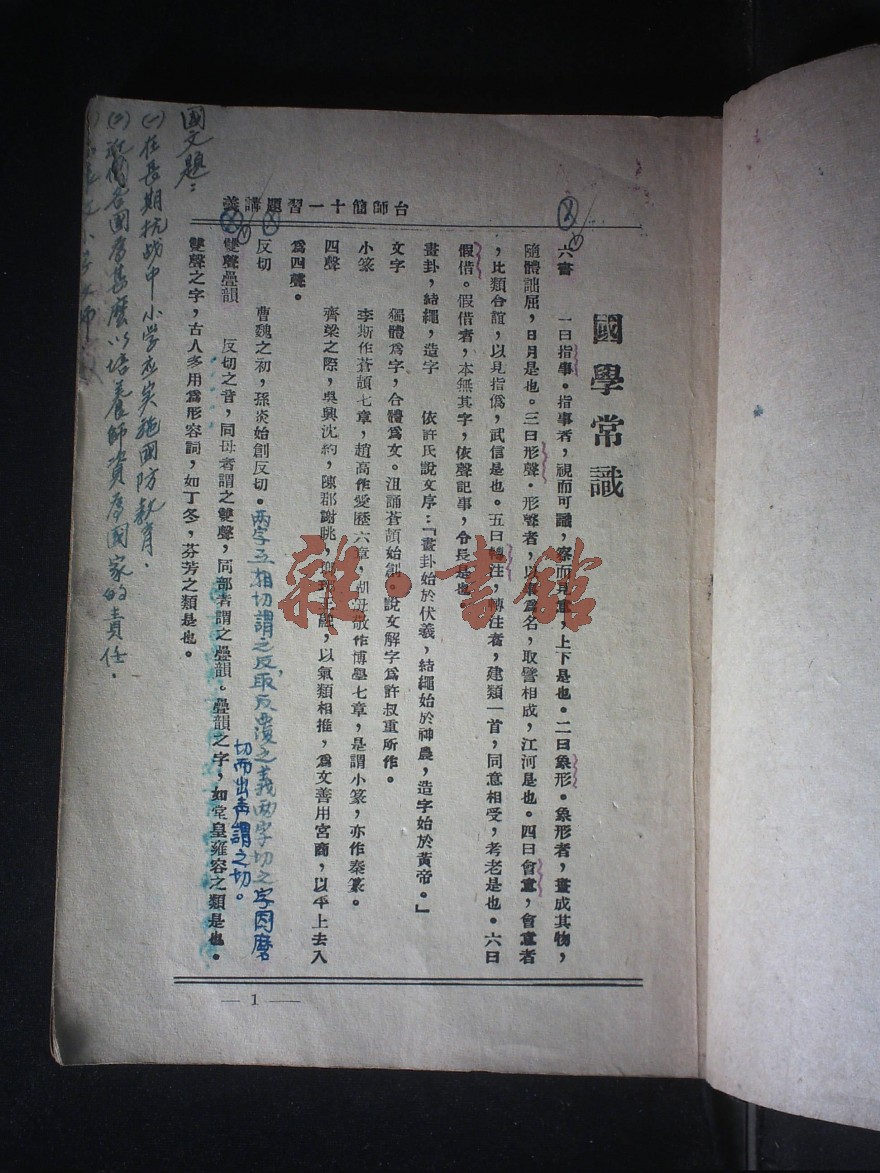 台師簡十一習題講義
國學常識
六書　一曰指事。指事者，視而可識，察而見意，上下是也。二曰象形。象形者，畫成其物，
隨體詘屈，日月是也。三曰形聲。形聲者，以事爲名，取譬相成，江河是也。四曰會意，會意者
，比類合誼，以見指僞，武信是也。五曰轉注，轉注者，建類一首，同意相受，考老是也。六曰
假借。假借者，本無其字，依聲記事，令長是也。
畫卦，結繩，造字　依許氏說文序：「畫卦始於伏羲，結繩始於神農，造字始於黃帝。」
文字　獨體爲字，合體爲文。沮誦蒼頡始創。說文解字爲許叔重所作。
小篆　李斯作蒼頡七章，趙高作爰歷六章，胡毋敬作博學七章，是謂小篆，亦作秦篆。
四聲　齊梁之際，吳興沈約，陳郡謝眺，王融，以氣類相推，爲文善用宮商，以平上去入
爲四聲。
反切　曹魏之初，孫炎始創反切。
两字互相切謂之反，取反復之義两字切之字因磨
切而出声謂之切。
雙聲疊韻　反切之音，同母者謂之雙聲，同部者謂之疊韻。疊韻之字，如堂皇雍容之類是也。
雙聲之字，古人多用爲形容詞，如丁冬，芬芳之類是也。
國文題：
(一)在長期抗战中小学应实施國防教育．
(二)近代各國爲甚麼以培养師資爲國家的責任．
— 1 —
雜·書館